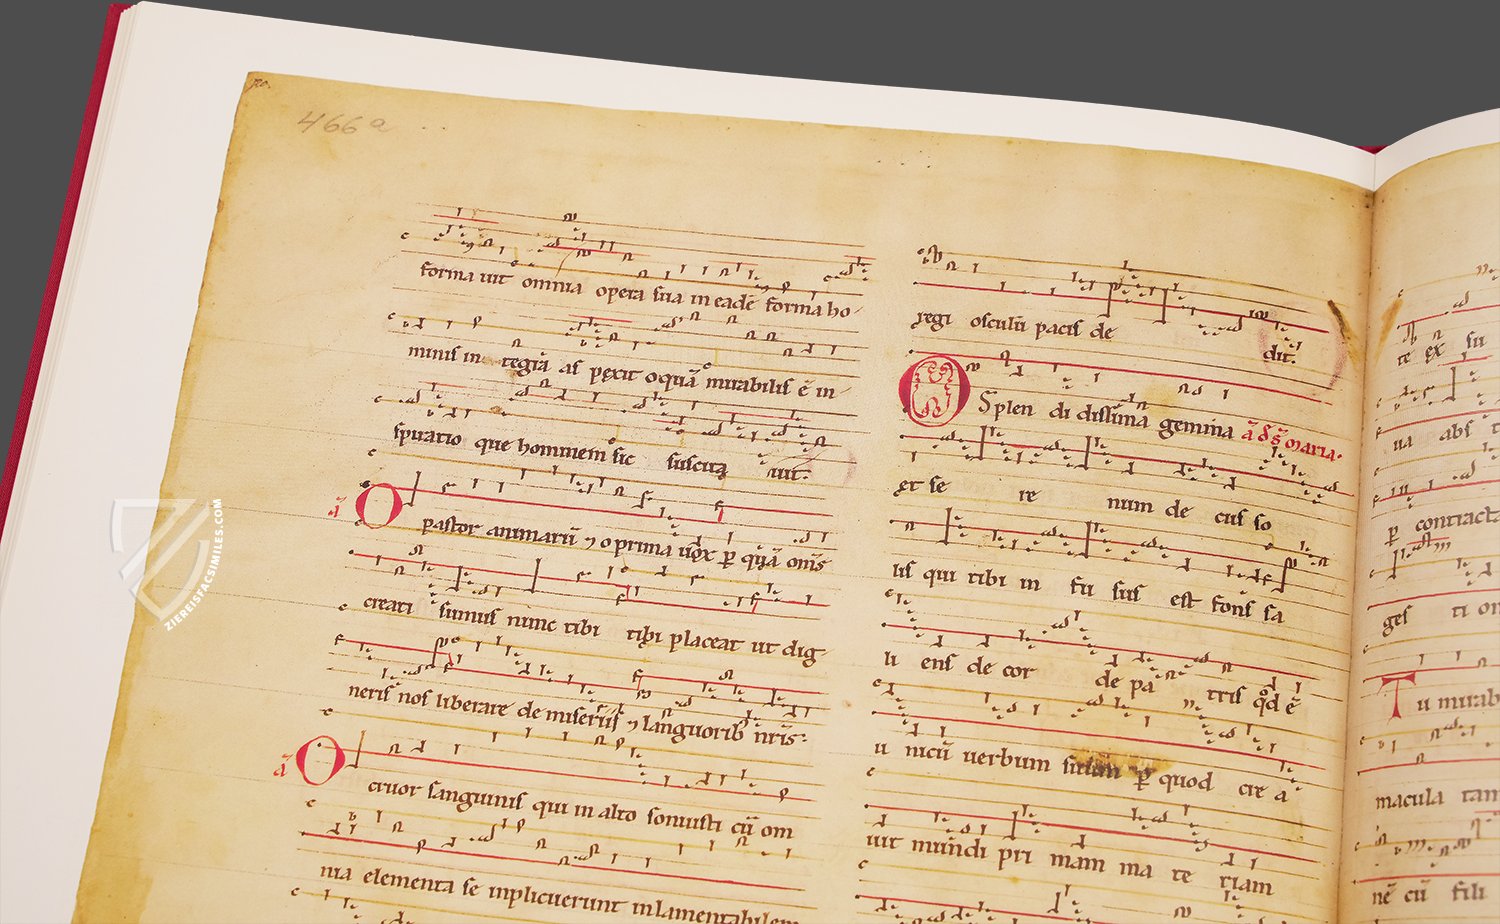 466a
forma uit omnia opera sua in eadē forma ho-
minis in tegrā as pexit o quā mirabilis ē in-
spiratio que hominem sic suscita uit.
ā O pastor animarū ⁊ o prima uox p̱ quā om̄s
creati sumus nunc tibi tibi placeat ut dig-
neris nos liberare de miseriis ⁊ languorib' nr̄is:
ā O cruor sanguinis qui in alto sonuisti cū om
nia elementa se inplicuerunt in lamentabilem
regi osculū pacis de dit.
O Splen di dissima gemma ā d s̄ maria.
et se re num de cus so
lis qui tibi in fu sus est fons sa
li ens de cor de pa tris qd̄ ē
u nicū uerbum suum p̱ quod cre a
uit mundi pri mam ma te riam
te ex su
ua abs
p̱ contracta
ges ti on
T u mirab
macula tam
nē cū fili
ZIEREISFACSIMILES.COM